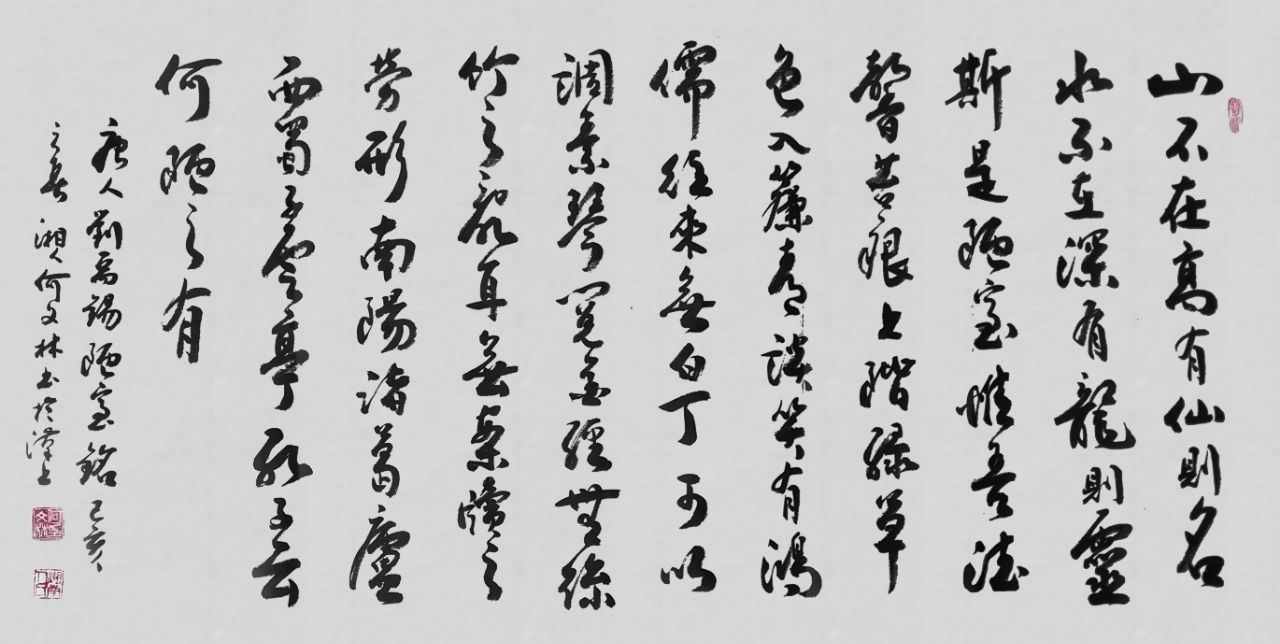 山不在高有仙則名
水不在深有龍則靈
斯是陋室惟吾德
馨苔痕上階緑草
色入簾青談笑有鴻
儒往來無白丁可以
調素琴閱金經無絲
竹之亂耳無案牘之
勞形南陽諸葛廬
西蜀子雲亭孔子云
何陋之有
唐人劉禹錫陋室銘己亥
之春湘人何文林书於漢上